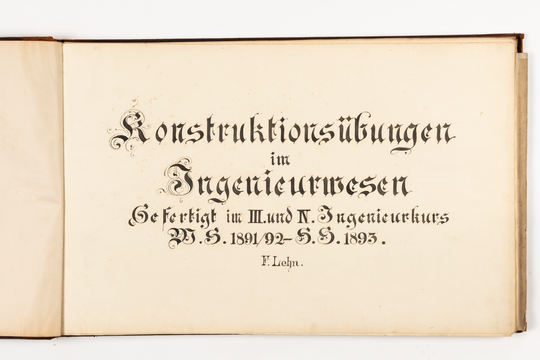 Konstruktionsübungen
im
Ingenieurwesen
Gefertigt im III. und IV. Ingenieurkurs
W. S. 1891/92 – S. S. 1893.
F. Lehn.